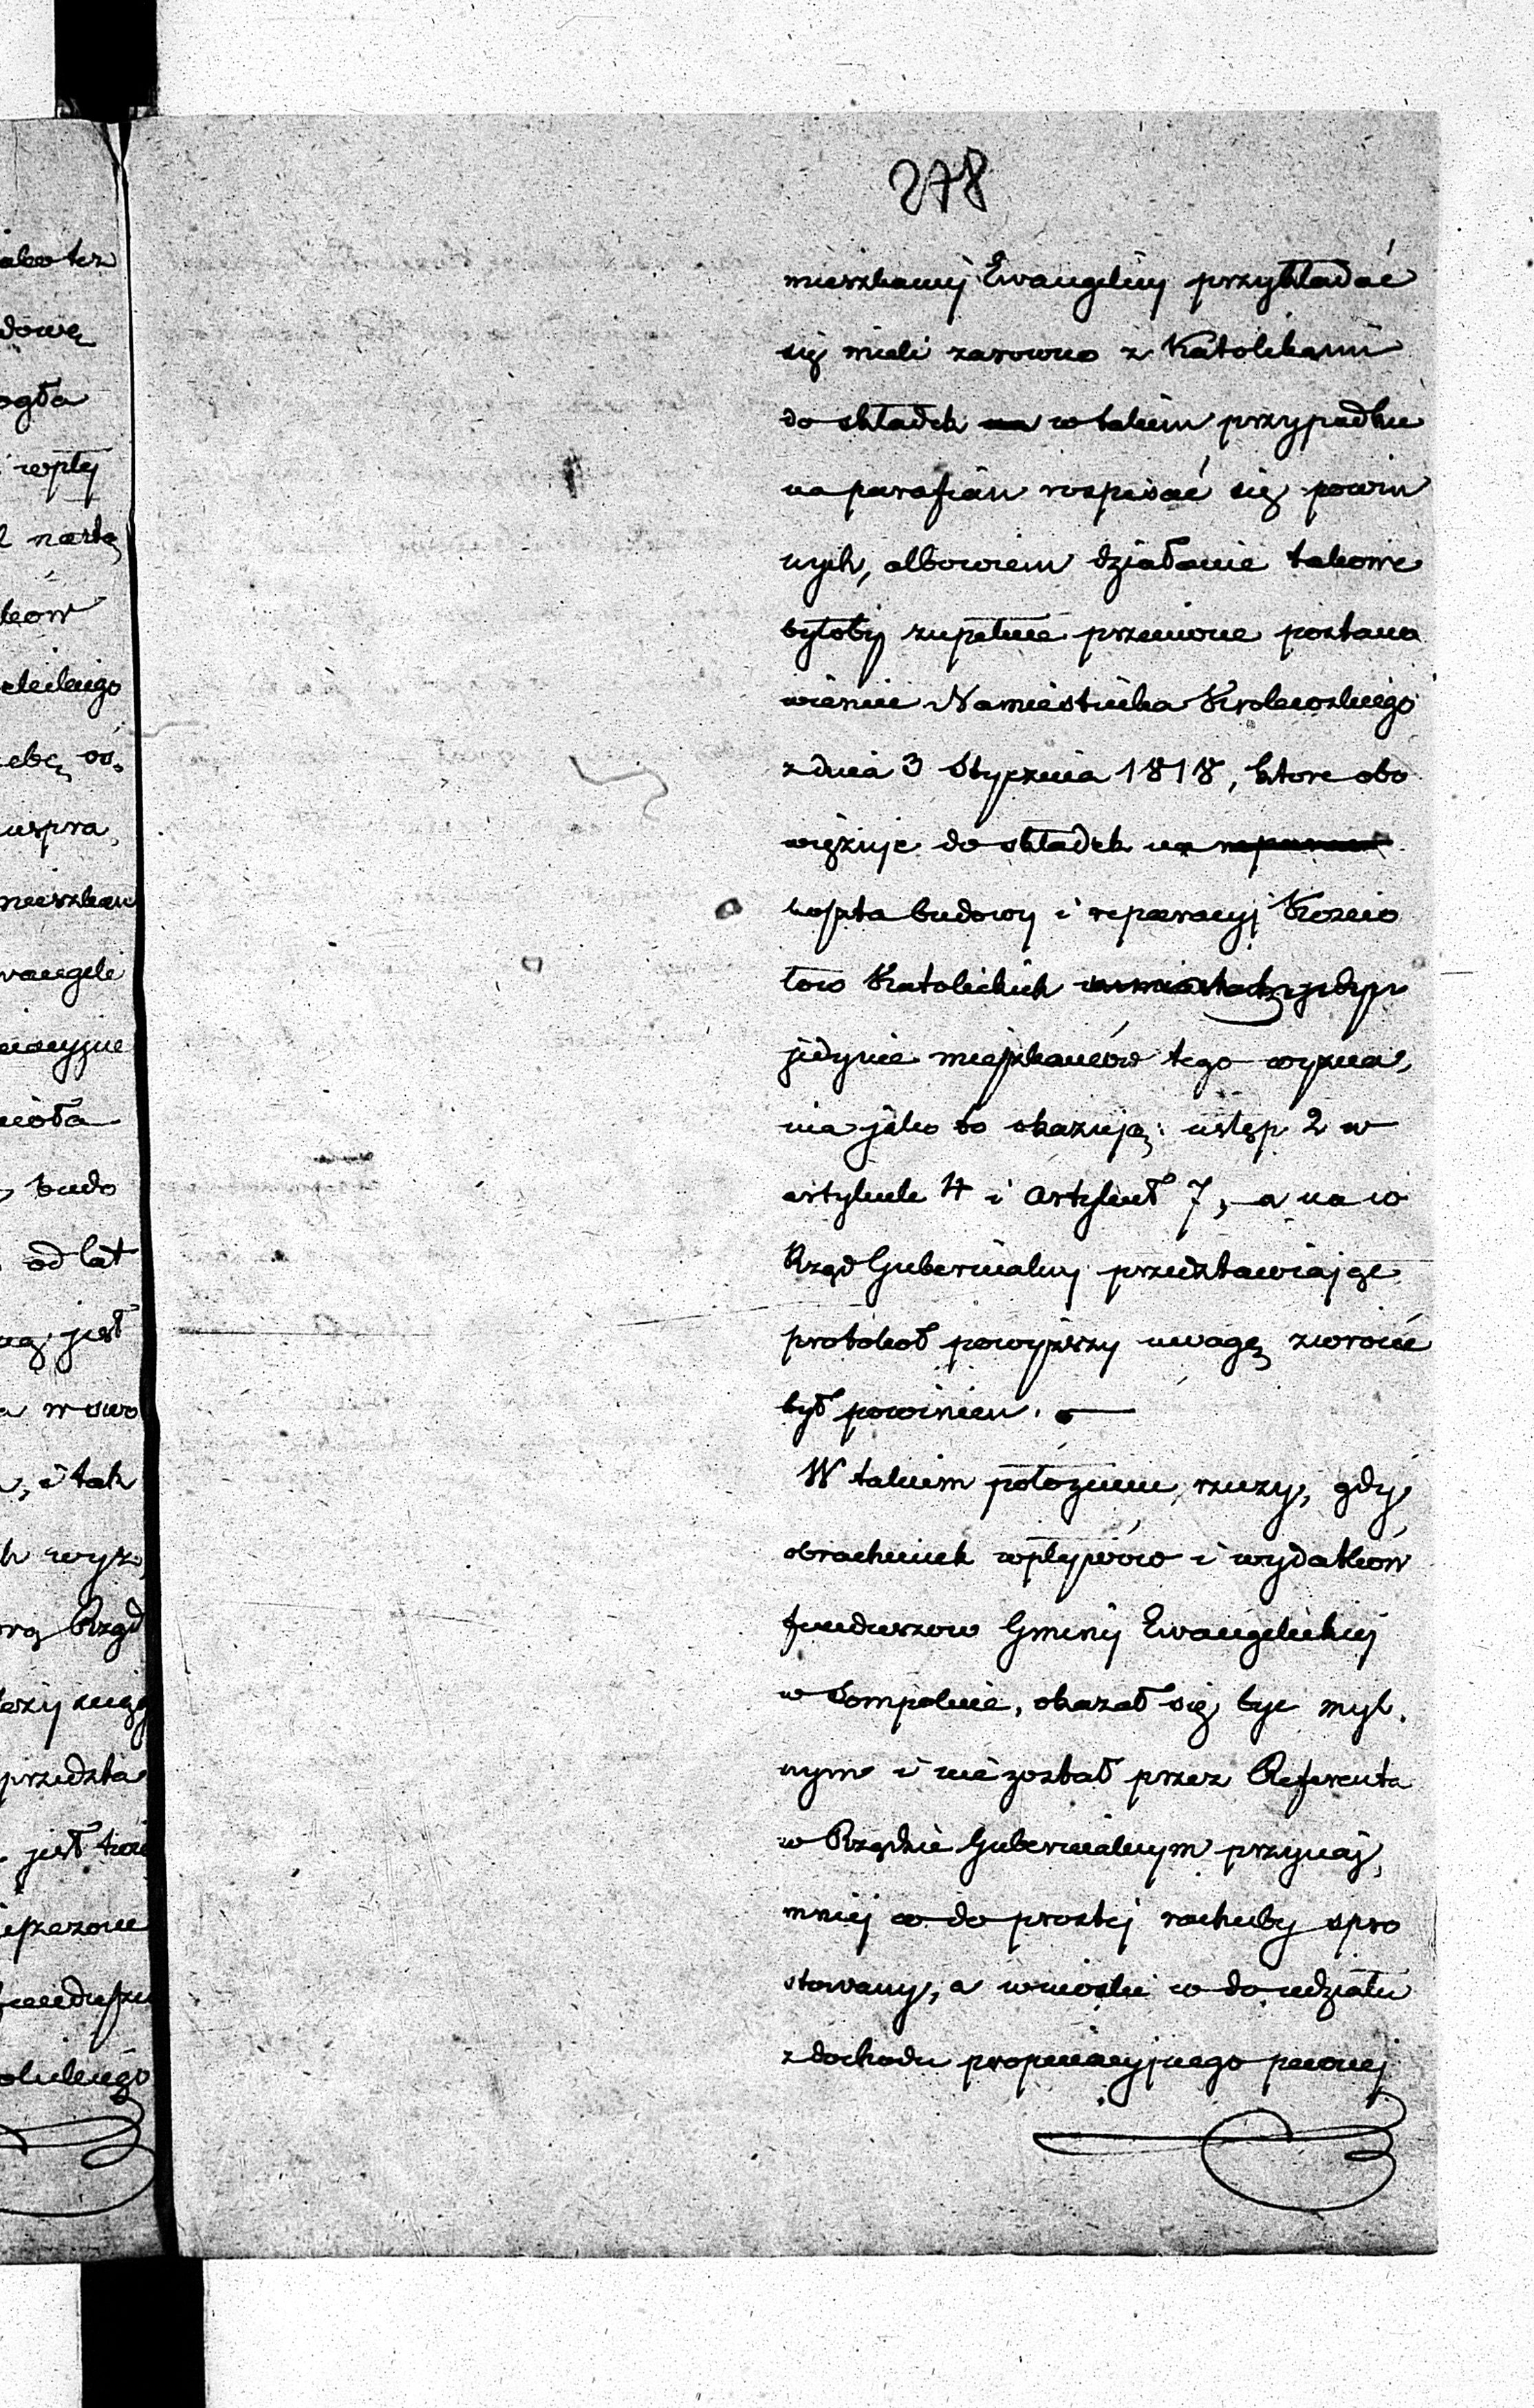 278
mieszkańcy Ewangeliccy przykładać
się mieli zarowno z Katolikami
do składek na w takim przypadku
na parafian rospisać się powin
nych, albowiem działanie takowe
byłoby zupełnie przeciwne postano
wieniu Namiestnika Krolewskiego
z dnia 3 Stycznia 1818, ktore obo
więzuje do składek na
koszta budowy i reparacyi Koscio
łow Katolickich w miastach jedyn
jedynie mieszkańców tego wyzna,
nia jako to okazują: ustęp 2 w
artykule 4 i artykuł 7, a na co
Rząd Gubernialny przedstawiając
protokoł powyższy uwagę zwrocić
był powinien. —
W takiem położeniu rzeczy, gdy
obrachunek wpływów i wydatków
funduszow Gminy Ewangelickiej
w Sompolnie, okazał się być myl.
nym i nie został przez Referenta
w Rządzie Gubernialnym przynaj,
mniej co do prostej rachuby spro
stowany, a wnioski co do udziału
z dochodu propinacyjnego pewnej
abo też
dowę
ogła
wpły
leow
uspra,
mieszkań
wangeli
nacyjne
cioła
budo
od lat
jest
w swo
i tak
wyż,
Rząd
przedsta
jest
fundusz
olickiego